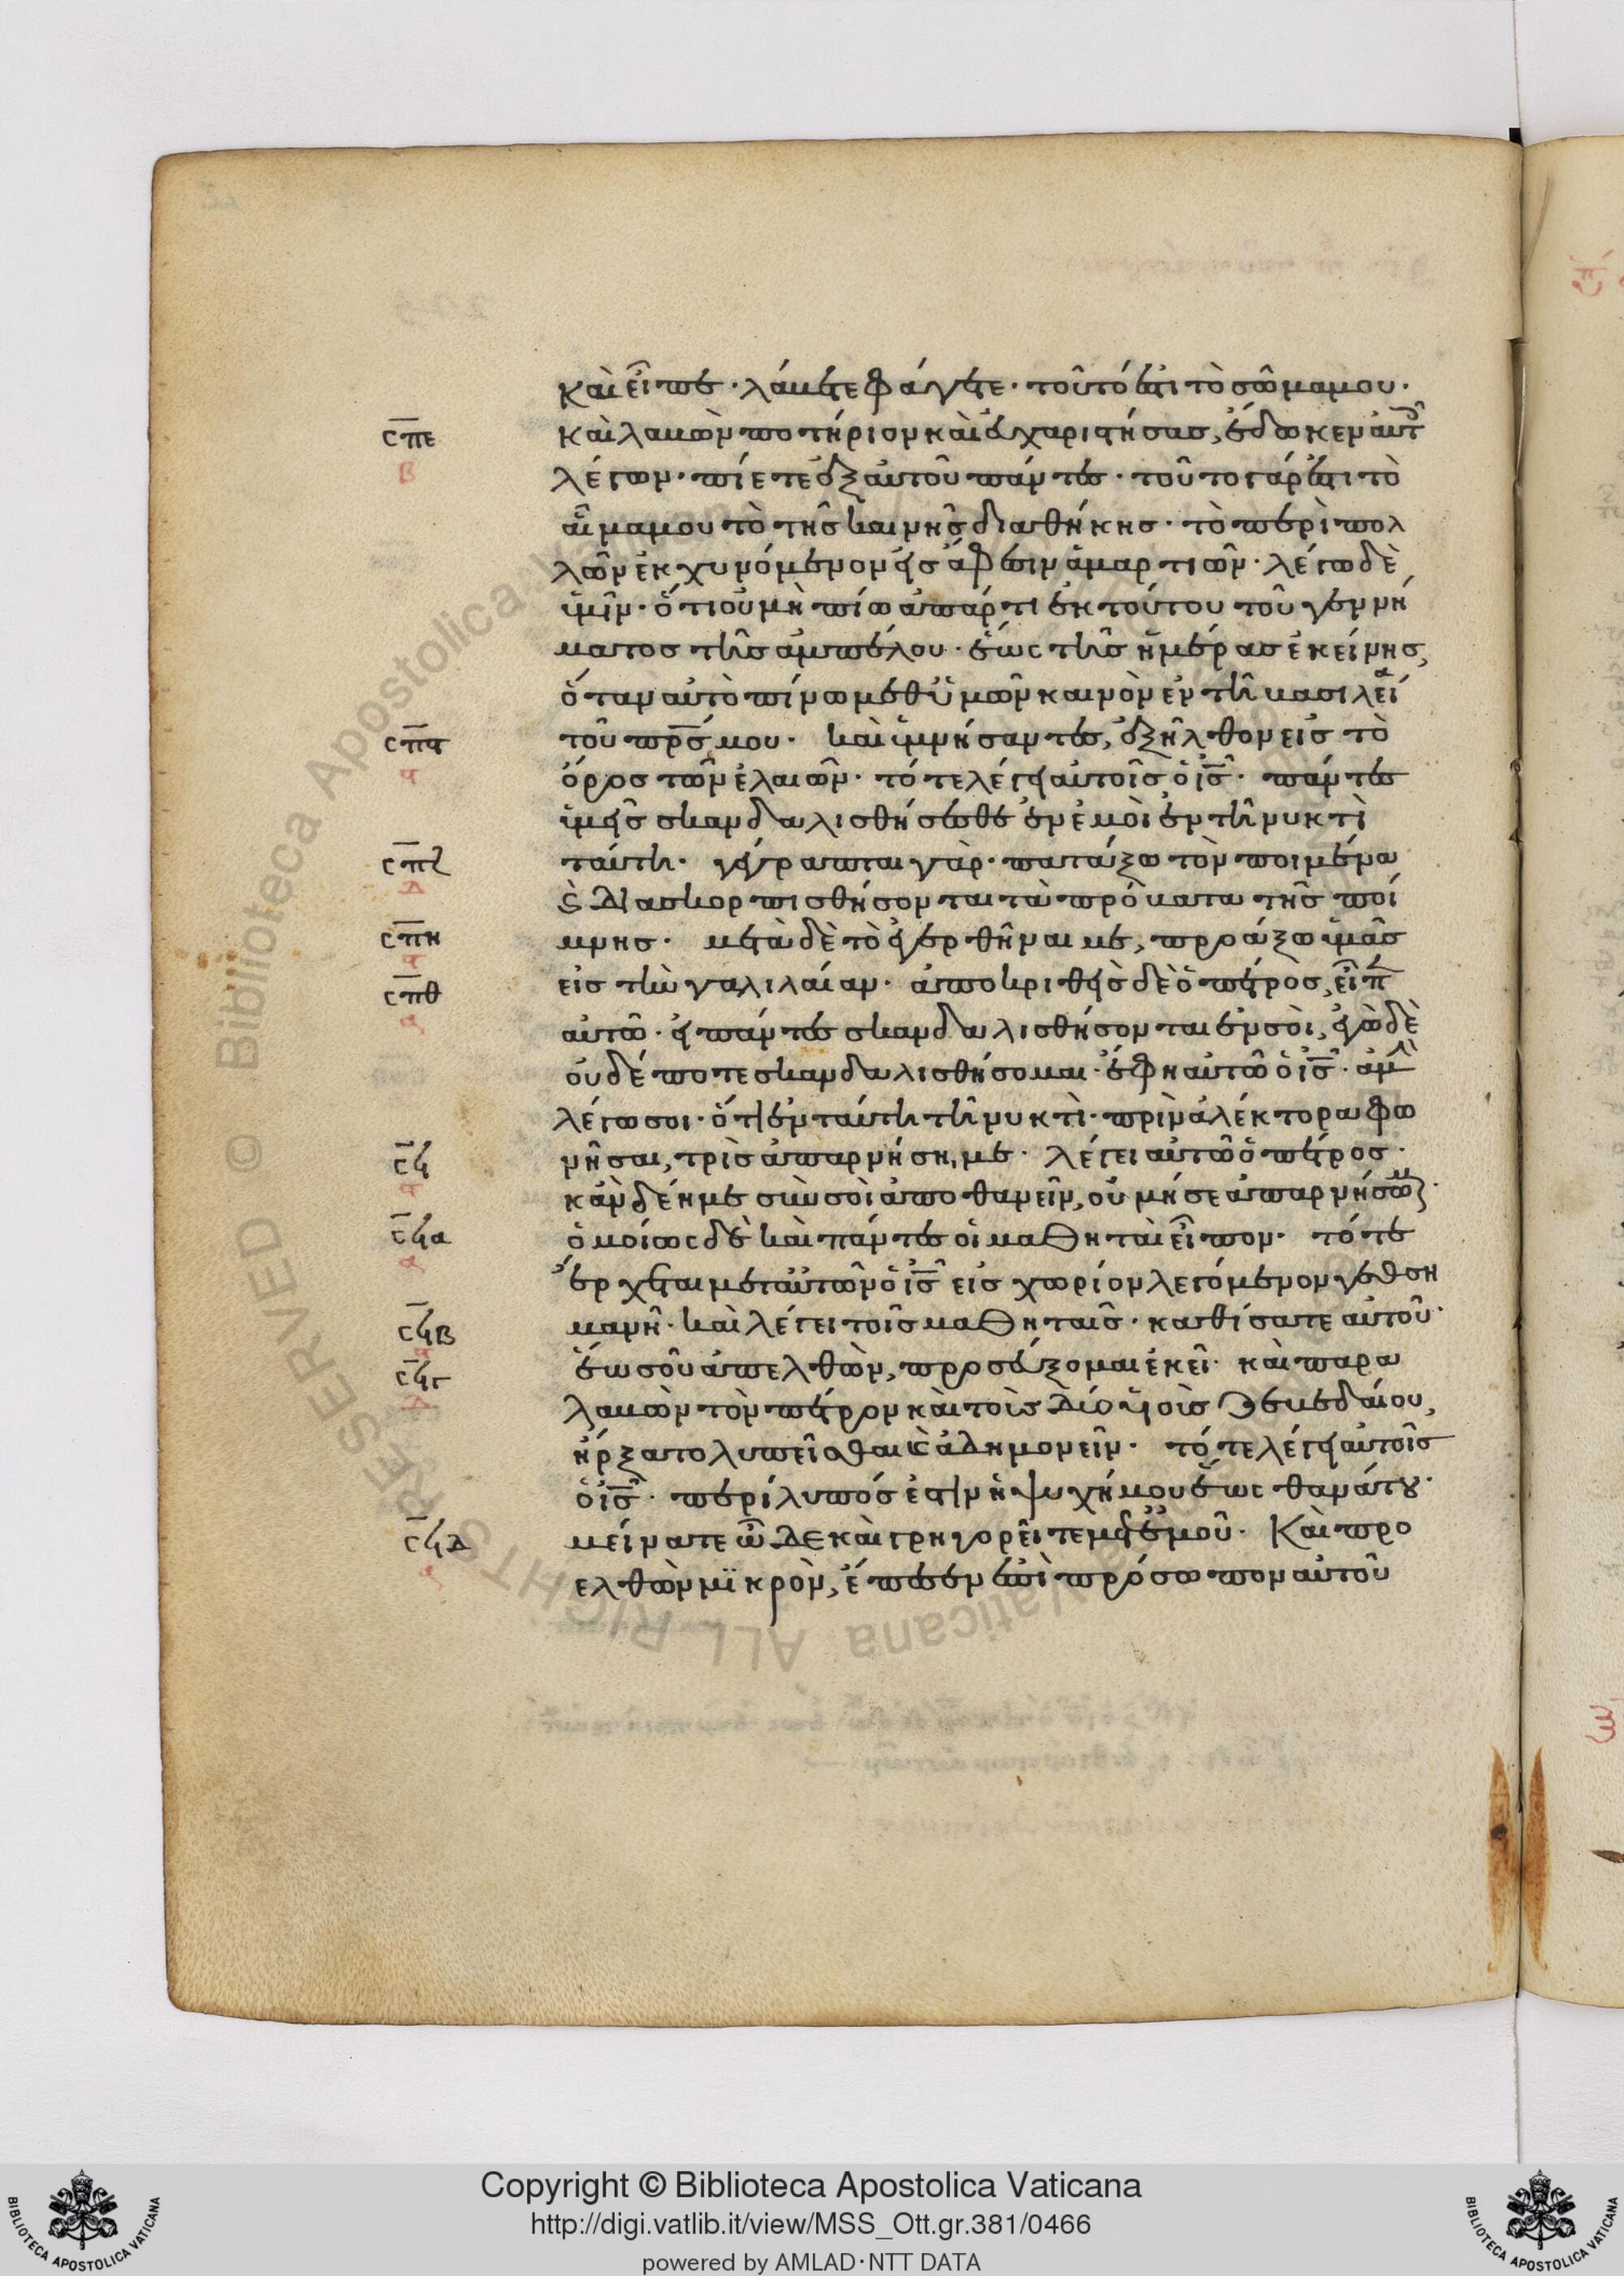 καὶ εἶπε· λάβετε φάγετε· τοῦτό ἐστι τὸ σῶμά μου·
σπε καὶ λαβὼν ποτήριον καὶ εὐχαριστήσας, ἔδωκεν αὐτ
β λέγων· πίετε ἐξ αὐτοῦ πάντες· τοῦτο γάρ ἐστι τὸ
αἷμα μου τὸ τῆς καινῆς διαθήκης· τὸ περὶ πολ
λῶν ἐκχυνόμενον εἰς ἄφεσιν ἁμαρτιῶν· λέγω δὲ
ὑμῖν· ὅτι οὐ μὴ πίω ἀπάρτι ἐκ τούτου τοῦ γεννή
ματος τῆς ἀμπέλου· ἕως τῆς ἡμέρας ἐκείνης,
ὅταν αὐτὸ πίνω μεθ ὑμῶν καινὸν ἐν τῆ βασιλεί
σπϛ τοῦ πρς μου· καὶ ὑμνήσαντες, ἐξῆλθον εἰς τὸ
ὄρος τῶν ἐλαιῶν· τότε λέγει αὐτοῖς ὁ ις· πάντες
ὑμεῖς σκανδαλισθήσεσθε ἐν ἐμοὶ ἐν τῆ νυκτὶ
σπζ ταύτη· γέγραπται γὰρ· πατάξω τὸν ποιμένα
ϗ διασκορπισθήσονται τὰ πρόβατα τῆς ποί
σπη μνης· μετὰ δὲ τὸ ἐγερθῆναι με, προάξω ὑμᾶς
σπθ εἰς τὴν γαλιλαίαν· ἀποκριθεὶς δὲ ὁ πέτρος, εἶπ
αὐτῶ· εἰ πάντες σκανδαλισθήσονται ἐν σοὶ, ἐγὼ δὲ
οὐδέποτε σκανδαλισθήσομαι· ἔφη αὐτῶ ὁ ις· ἀμ
λέγω σοι· ὅτι ἐν ταύτη τῆ νυκτὶ· πρὶν ἀλέκτορα φω
σϟ νῆσαι, τρὶς ἀπαρνήση με· λέγει αὐτῶ ὁ πέτρος·
κἂν δέη με σὺν σοὶ ἀποθανεῖν, οὐ μή σε ἀπαρνήσωμ·
σϟα ὁμοίως δὲ καὶ πάντες οἱ μαθηταὶ εἶπον· τότε
ἔρχεται μετ αὐτῶν ὁ ις εἰς χωρίον λεγόμενον γεθση
σϟβ μανῆ· καὶ λέγει τοῖς μαθηταῖς· καθίσατε αὐτοῦ·
σϟγ ἕως οὗ ἀπελθὼν, προσεύξομαι ἐκεῖ· καὶ παρα
λαβὼν τὸν πέτρον καὶ τοὺς δύο υἱοὺς ζεβεδαίου,
ἤρξατο λυπεῖσθαι ϗ ἀδημονεῖν· τότε λέγει αὐτοῖς
ὁ ις· περίλυπός ἐστιν ἡ ψυχή μου ἕως θανάτου·
σϟδ μείνατε ὧδε καὶ γρηγορεῖτε μετ ἐμοῦ· Καὶ προ
ελθὼν μικρὸν, ἔπεσεν ἐπὶ πρόσωπον αὐτοῦ
Copyright © Biblioteca Apostolica Vaticana
http://digi.vatlib.it/view/MSS_Ott.gr.381/0466
powered by AMLAD·NTT DATA
© Biblioteca Apostolica Vaticana ALL RIGHTS RESERVED
BIBLIOTECA APOSTOLICA VATICANA
BIBLIOTECA APOSTOLICA VATICANA